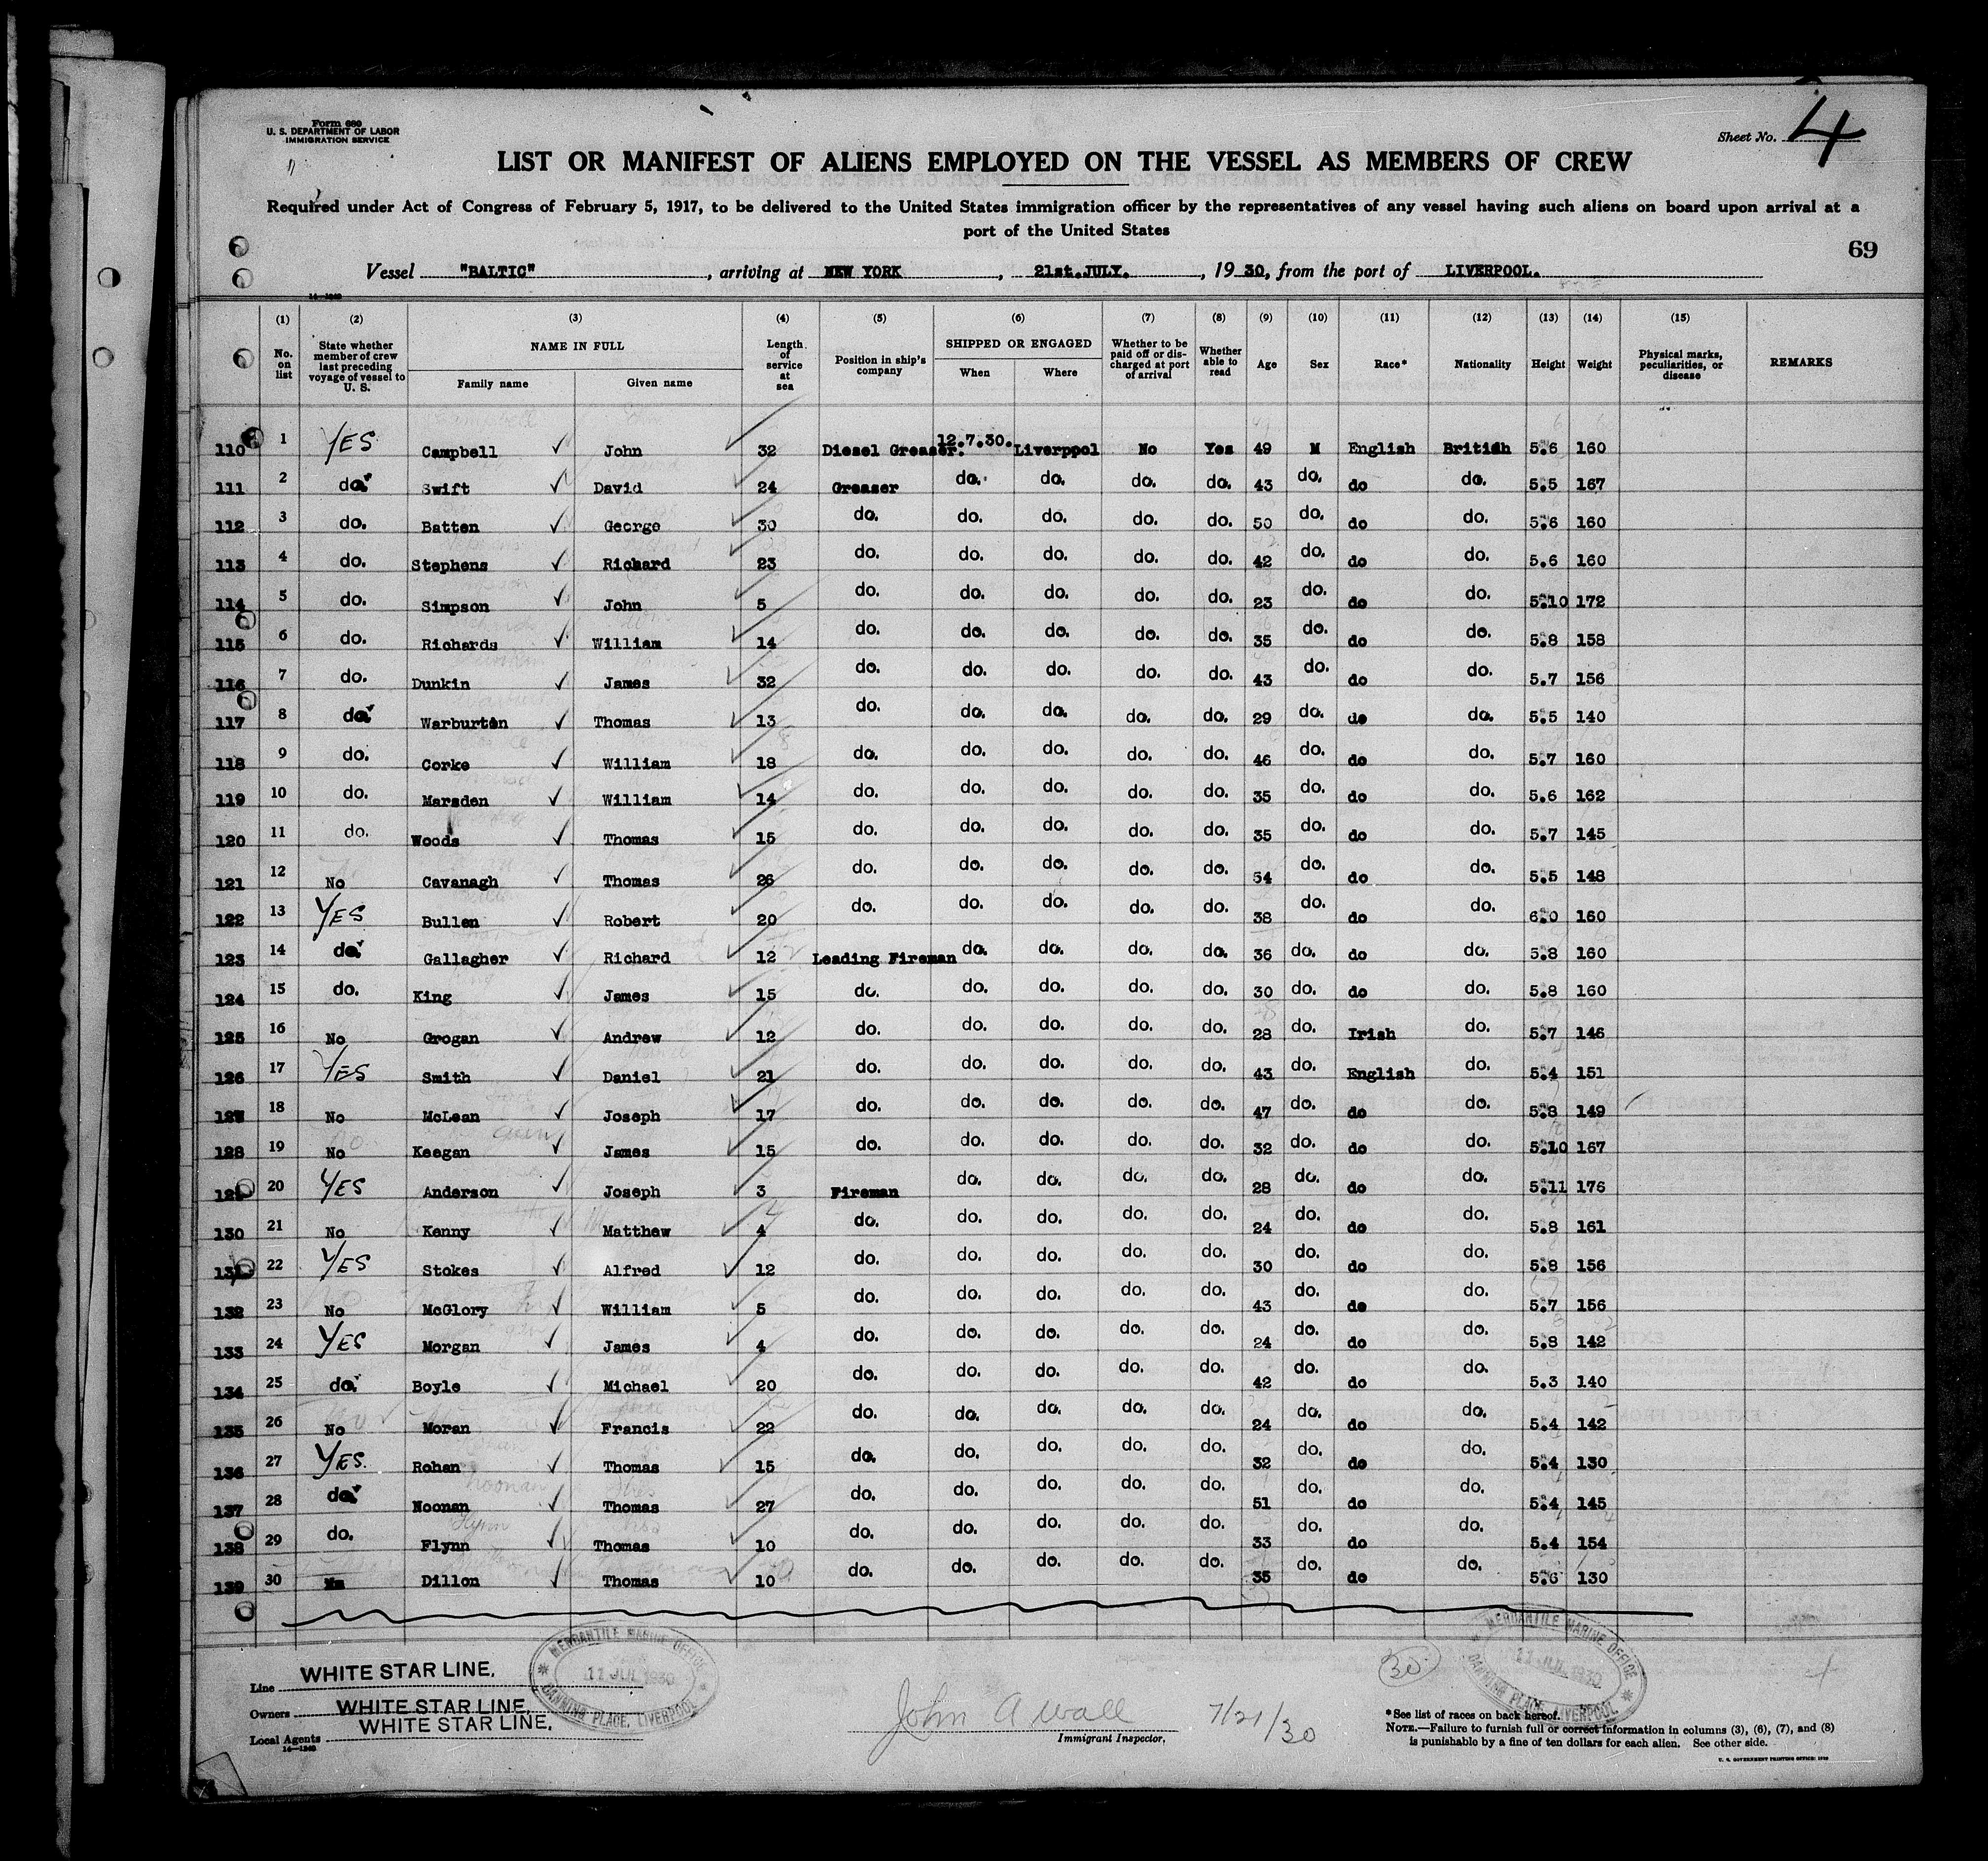 Form 680
U. S. DEPARTMENT OF LABOR
IMMIGRATION SERVICE
Sheet No. 4
LIST OR MANIFEST OF ALIENS EMPLOYED ON THE VESSEL AS MEMBERS OF CREW
Required under Act of Congress of February 5, 1917, to be delivered to the United States immigration officer by the representatives of any vessel having such aliens on board upon arrival at a
port of the United States
69
Vessel "BALTIC", arriving at NEW YORK, 21st.JULY., 1930, from the port of LIVERPOOL.
(1) (2) (3) (4) (5) (6) (7) (8) (9) (10) (11) (12) (13) (14) (15)
No. on list State whether member of crew last preceding voyage of vessel to U. S. NAME IN FULL Family name Given name Length of service at sea Position in ship's company SHIPPED OR ENGAGED When Where Whether to be paid off or discharged at port of arrival Whether able to read Age Sex Race* Nationality Height Weight Physical marks, peculiarities, or disease REMARKS
110 1 YES Campbell John 32 Diesel Greaser. 12.7.30. Liverppol No Yes 49 M English British 5.6 160
111 2 do. Swift David 24 Greaser do. do. do. do. 43 do. do do. 5.5 167
112 3 do. Batten George 30 do. do. do. do. do. 50 do. do do. 5.6 160
113 4 do. Stephens Richard 23 do. do. do. do. do. 42 do. do do. 5.6 160
114 5 do. Simpson John 5 do. do. do. do. do. 23 do. do do. 5.10 172
115 6 do. Richards William 14 do. do. do. do. do. 35 do. do do. 5.8 158
116 7 do. Dunkin James 32 do. do. do. do. do. 43 do. do do. 5.7 156
117 8 do. Warburton Thomas 13 do. do. do. do. do. 29 do. do do. 5.5 140
118 9 do. Corke William 18 do. do. do. do. do. 46 do. do do. 5.7 160
119 10 do. Marsden William 14 do. do. do. do. do. 35 do. do do. 5.6 162
120 11 do. Woods Thomas 15 do. do. do. do. do. 35 do. do do. 5.7 145
121 12 No Cavanagh Thomas 26 do. do. do. do. do. 54 do. do do. 5.5 148
122 13 YES Bullen Robert 20 do. do. do. do. do. 38 do. do do. 6.0 160
123 14 do. Gallagher Richard 12 Leading Fireman do. do. do. do. 36 do. do do. 5.8 160
124 15 do. King James 15 do. do. do. do. do. 30 do. do do. 5.8 160
125 16 No Grogan Andrew 12 do. do. do. do. do. 28 do. Irish do. 5.7 146
126 17 YES Smith Daniel 21 do. do. do. do. do. 43 do. English do. 5.4 151
127 18 No McLean Joseph 17 do. do. do. do. do. 47 do. do do. 5.8 149
128 19 No Keegan James 15 do. do. do. do. do. 32 do. do do. 5.10 167
129 20 YES Anderson Joseph 3 Fireman do. do. do. do. 28 do. do do. 5.11 176
130 21 No Kenny Matthew 4 do. do. do. do. do. 24 do. do do. 5.8 161
131 22 YES Stokes Alfred 12 do. do. do. do. do. 30 do. do do. 5.8 156
132 23 No McGlory William 5 do. do. do. do. do. 43 do. do do. 5.7 156
133 24 YES Morgan James 4 do. do. do. do. do. 24 do. do do. 5.8 142
134 25 do. Boyle Michael 20 do. do. do. do. do. 42 do. do do. 5.3 140
135 26 No Moran Francis 22 do. do. do. do. do. 24 do. do do. 5.4 142
136 27 YES. Rohan Thomas 15 do. do. do. do. do. 32 do. do do. 5.4 130
137 28 do. Noonan Thomas 27 do. do. do. do. do. 51 do. do do. 5.4 145
138 29 do. Flynn Thomas 10 do. do. do. do. do. 33 do. do do. 5.4 154
139 30 Dillon Thomas 10 do. do. do. do. do. 35 do. do do. 5.6 130
Line WHITE STAR LINE.
Owners WHITE STAR LINE.
Local Agents WHITE STAR LINE.
14—1240
MERCANTILE MARINE OFFICE
11 JUL 1930
CANNING PLACE, LIVERPOOL
John A Wall
Immigrant Inspector.
7/21/30
30
MERCANTILE MARINE OFFICE
11 JUL 1930
CANNING PLACE, LIVERPOOL
* See list of races on back hereof.
NOTE.—Failure to furnish full or correct information in columns (3), (6), (7), and (8)
is punishable by a fine of ten dollars for each alien. See other side.